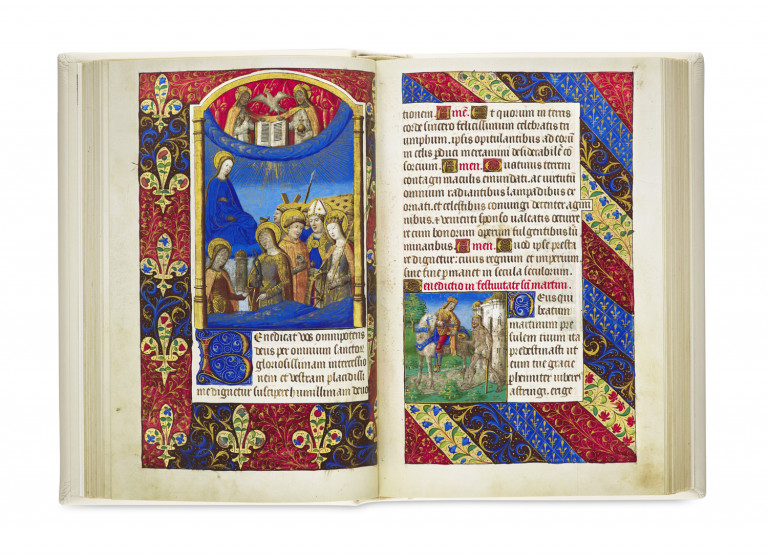 Benedicat vos omnipotens
deus per omnium sanctor
gloriosissimam intercessio
nem et vestram placidissi
me dignetur suscipere humillimam devo
tionem. Amen. Et quorum in terris
corde sincero felicissimum celebratis tri
umphum, ipsis opitulantibus ad eorum
in celis perduci mereamini desiderabile co
sorcium. Amen. Quotinus terreni
contagii maculis emundati ac virtutum
omnium radiantibus lampadibus ex
ornati, et celestibus coniungi decenter agmi
nibus, et venienti sponso valeatis occurre
re cum bonorum operum fulgentibus lu
minaribus. Amen. Quod ipse presta
re dignetur: cuius regnum et imperium
sine fine permanet in secula seculorum.
Benedictio in festivitate sancti martini.
Deus qui
beatum
martinum pre
sulem tuum ita
predestinasti ut
eum tue gracie
pleniter ubere
astringi. erige